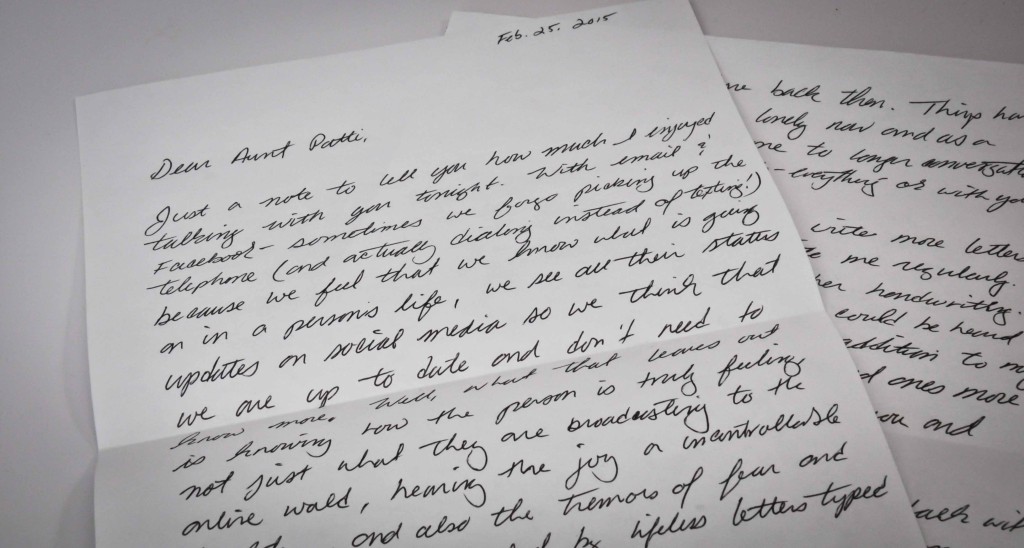 Feb. 25. 2015
Dear Aunt Patti,
Just a note to tell you how much I enjoyed
talking with you tonight. With email &
Facebook - sometimes we forgo picking up the
telephone (and actually dialing instead of texting!)
because we feel that we know what is going
on in a person's life, we see all their status
updates on social media so we think that
we are up to date and don't need to
know more. Well, what that leaves out
is knowing how the person is truly feeling
not just what they are broadcasting to the
online world, hearing the joy a uncontrollable
and also the tremors of fear and
by lifeless letters typed
back then. Things ha
lonely now and as a
me to longer
everything or with you
write more letters
me regularly.
her handwriting.
could be heard
addition to my
ones more
you and